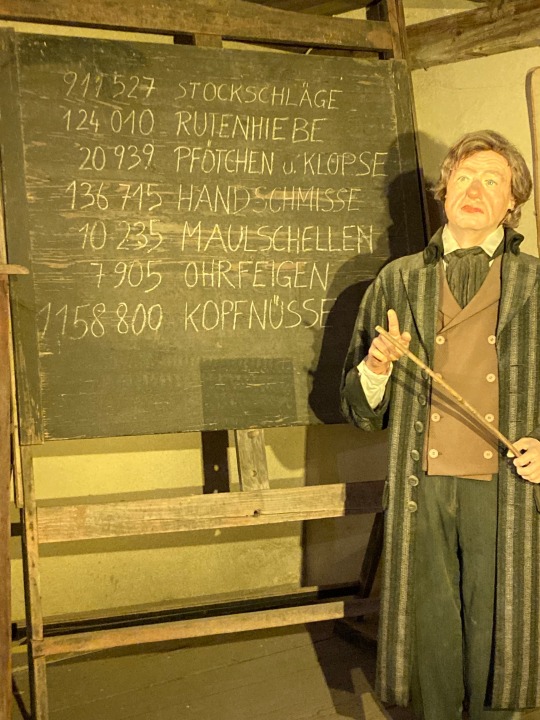 911 527 STOCKSCHLÄGE
124 010 RUTENHIEBE
20 939 PFÖTCHEN u. KLOPSE
136 715 HANDSCHMISSE
10 235 MAULSCHELLEN
7 905 OHRFEIGEN
1 158 800 KOPFNÜSSE